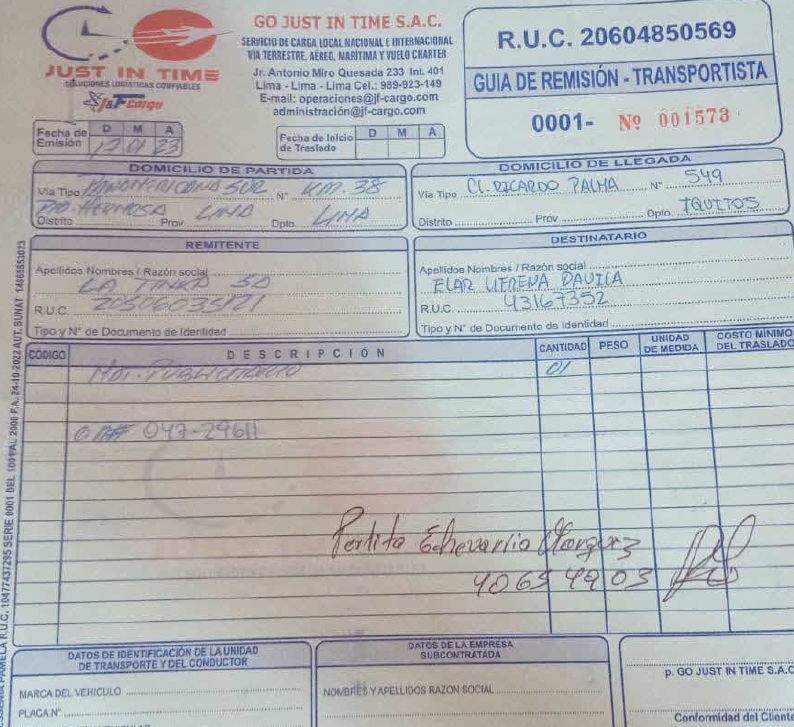 JUST IN TIME
SOLUCIONES LOGÍSTICAS CONFIABLES
J&F Cargo
GO JUST IN TIME S.A.C.
SERVICIO DE CARGA LOCAL NACIONAL E INTERNACIONAL
VÍA TERRESTRE, AÉREO, MARÍTIMA Y VUELO CHARTER
Jr. Antonio Miro Quesada 233 Int. 401
Lima - Lima - Lima Cel.: 989-923-149
E-mail: operaciones@jf-cargo.com
administración@jf-cargo.com
R.U.C. 20604850569
GUIA DE REMISIÓN - TRANSPORTISTA
0001- Nº 001573
Fecha de Emisión D M A
01 23
Fecha de Inicio de Traslado D M A
DOMICILIO DE PARTIDA
Vía Tipo PANAMERICANA SUR N° KM. 38
Pto. HERMOSA LIMA LIMA
Distrito Prov. Dpto.
DOMICILIO DE LLEGADA
Vía Tipo CL. RICARDO PALMA N° 549
Distrito Prov. Dpto. IQUITOS
REMITENTE
Apellidos Nombres / Razón social
LA TINKA SA
R.U.C. 20506035121
Tipo y N° de Documento de Identidad
DESTINATARIO
Apellidos Nombres / Razón social
DAVILA
R.U.C. 43167352
Tipo y N° de Documento de Identidad
CÓDIGO DESCRIPCIÓN CANTIDAD PESO UNIDAD DE MEDIDA COSTO MÍNIMO DEL TRASLADO
Mat. PUBLICITARIO 01
047-29611
Perlita Echevarria
40654903
DATOS DE IDENTIFICACIÓN DE LA UNIDAD
DE TRANSPORTE Y DEL CONDUCTOR
MARCA DEL VEHICULO
PLACA N°
DATOS DE LA EMPRESA
SUBCONTRATADA
NOMBRES Y APELLIDOS RAZON SOCIAL
p. GO JUST IN TIME S.A.C
Conformidad del Cliente
PAMELA R.U.C. 10477437295 SERIE 0001 DEL 1001 AL 2000 F.A. 24-10-2022 AUT. SUNAT 14865853023